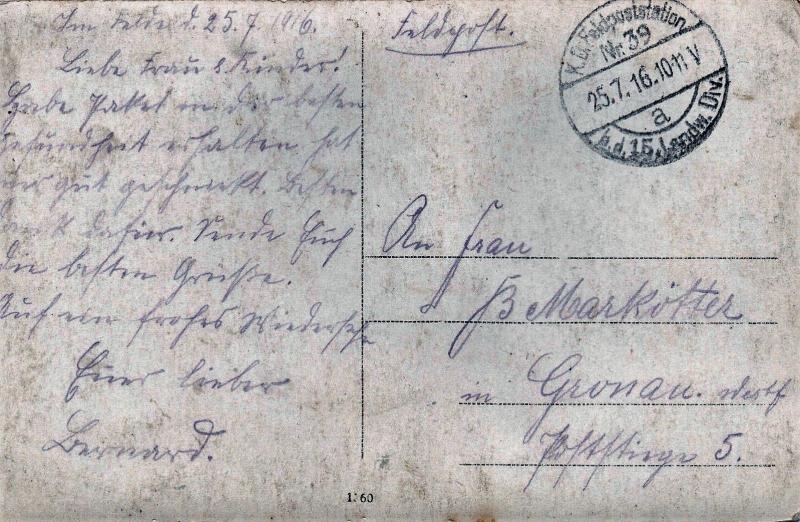 Im Felde d. 25.7.1916.
Liebe Frau & Kinder!
Habe Paket in der besten
Gesundheit erhalten hat
mir gut geschmeckt. Besten
Dank dafür. Sende Euch
die besten Grüße.
Auf ein frohes Wiedersehn
Euer lieber
Bernard.
Feldpost.
K.D. Feldpoststation
Nr. 39
25.7.16.10-11 V
a
b.d. 15. Landw. Div.
An Frau
B Markötter
in Gronau. Westf
Poststiege 5.
1. 60